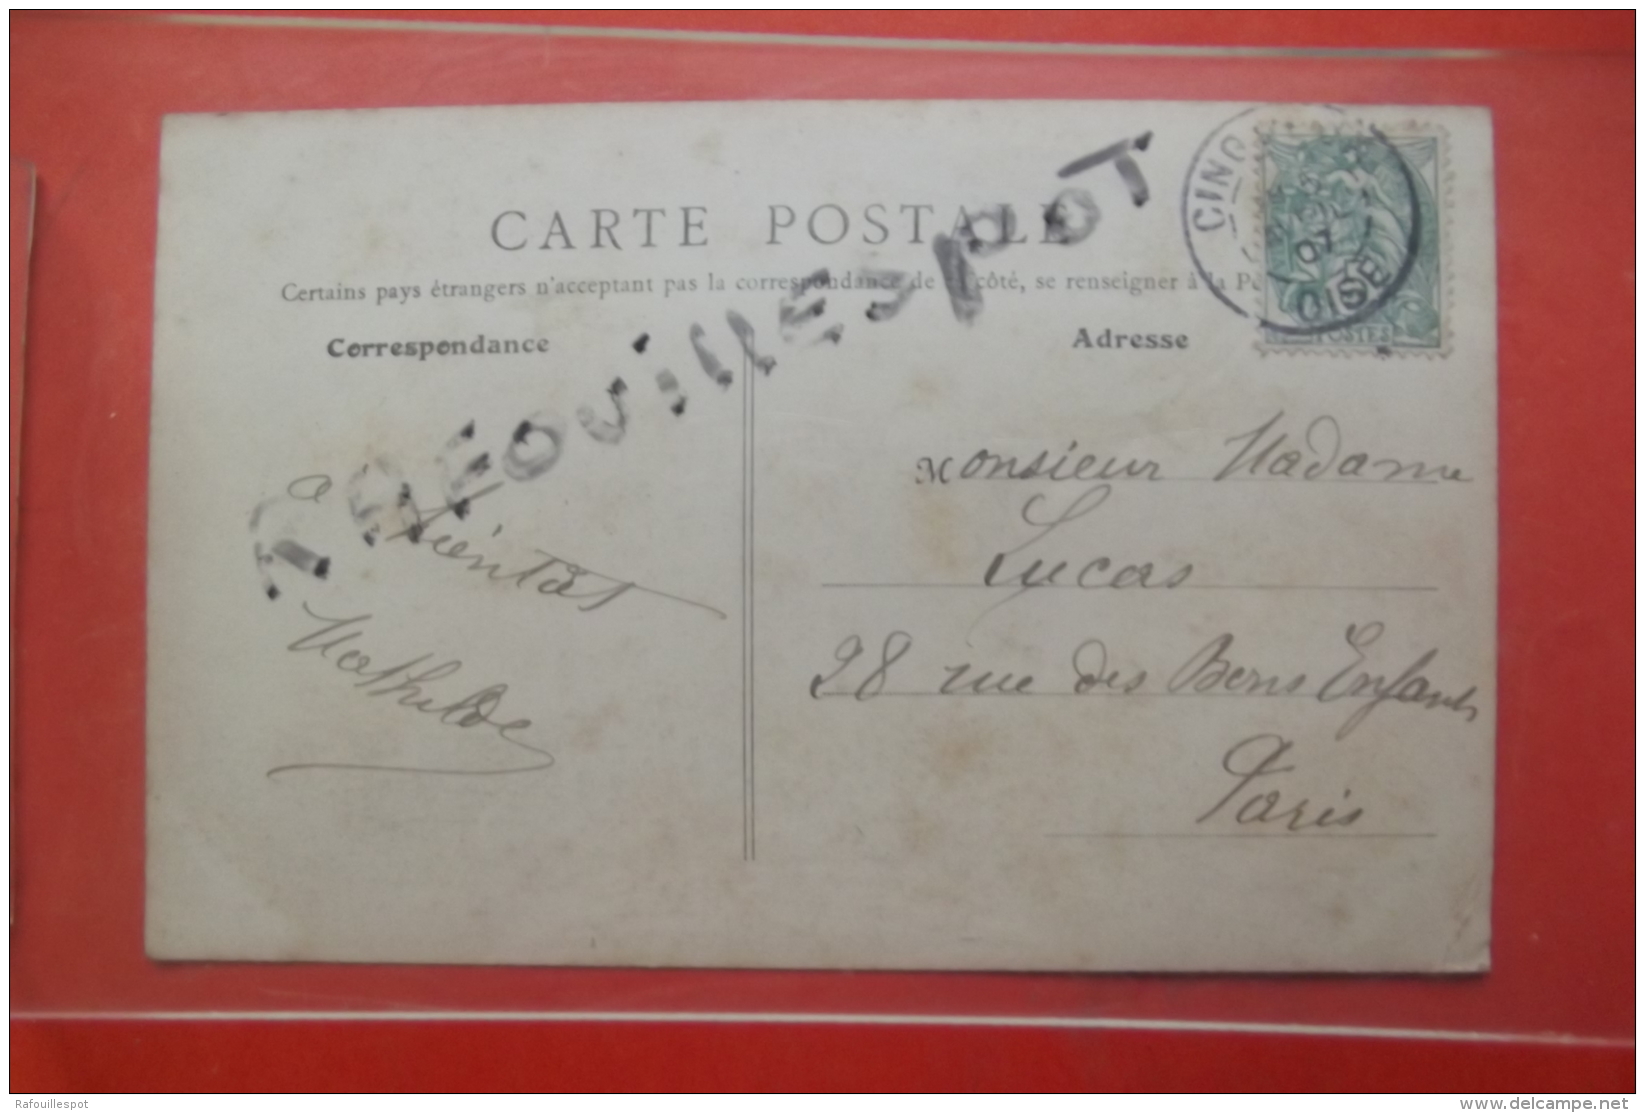 CARTE POSTALE
Certains pays étrangers n'acceptant pas la correspondance de ce côté, se renseigner à la
Correspondance
Adresse
CINQ
OISE
07
POSTES
Rafouillespot
à bientôt
Mathilde
Monsieur Madame
Lucas
28 rue des Bons Enfants
Paris
Rafouillespot
www.delcampe.net